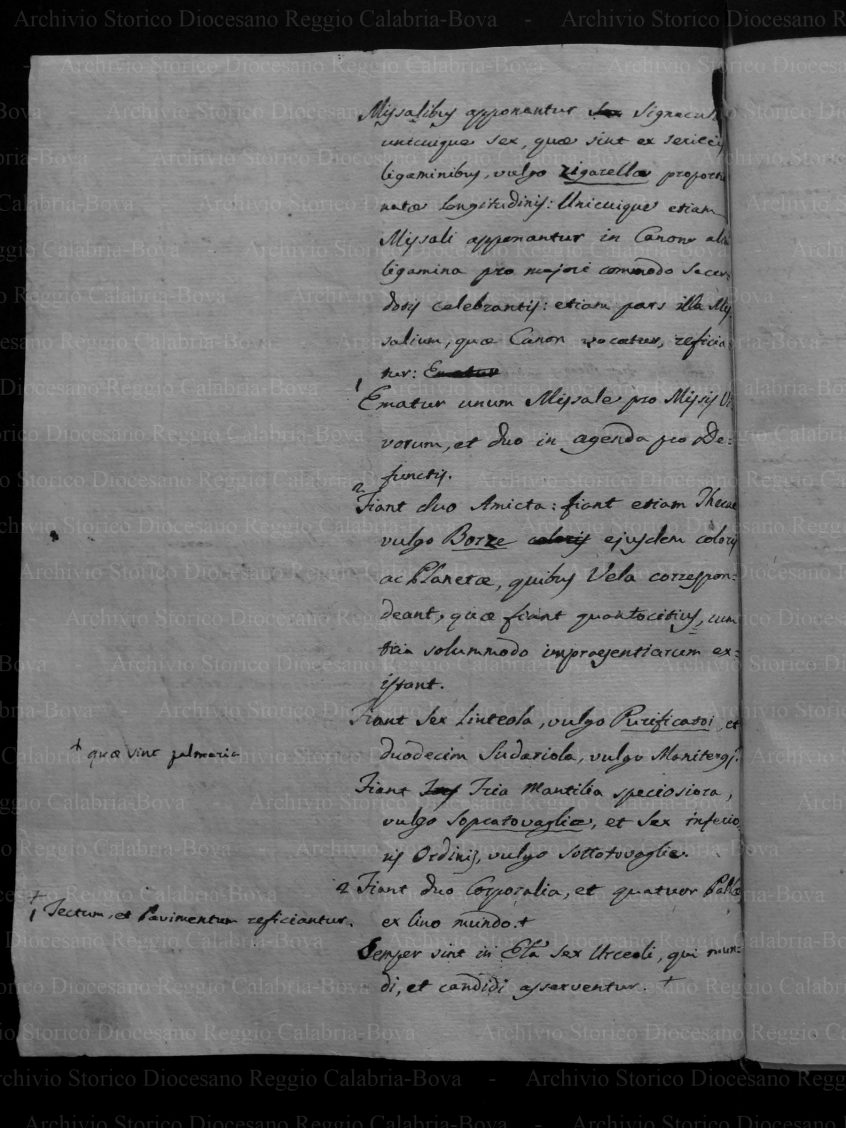 Missalibus apponantur sex signacul
unicuique sex, quæ sint ex sericis
ligaminibus, vulgo zigarellæ proportio
natæ longitudinis: Unicuique etiam
Missali apponantur in Canone alia
ligamina pro majori commodo Sacer
dotis celebrantis: etiam pars illa Mis
salium, quæ Canon vocatur, reficia
tur: Ematur
1 Ematur unum Missale pro Missis Vi
vorum, et duo in agenda pro De=
functis.
2 Fiant duo Amicta: fiant etiam Thecae
vulgo Borze coloris ejusdem coloris
ac Planetæ, quibus Vela correspon=
deant, quæ fiant quantocitius, cum
tria solummodo impraesentiarum ex=
istant.
Fiant sex Linteola, vulgo Purificatoi, et
duodecim Sudariola, vulgo Manitergj.
+ quæ sint palmaria
Fiant Tria Mantilia speciosiora,
vulgo Sopratovaglie, et sex inferio
ris Ordinis, vulgo sottotovaglie.
2 Fiant duo Corporalia, et quatuor Pallæ
ex lino mundo.+
+
1 Tectum, et Pavimentum reficiantur.
Semper sint in Ecc̃la sex Urceoli, qui mun=
di, et candidi asserventur. +
Archivio Storico Diocesano Reggio Calabria-Bova